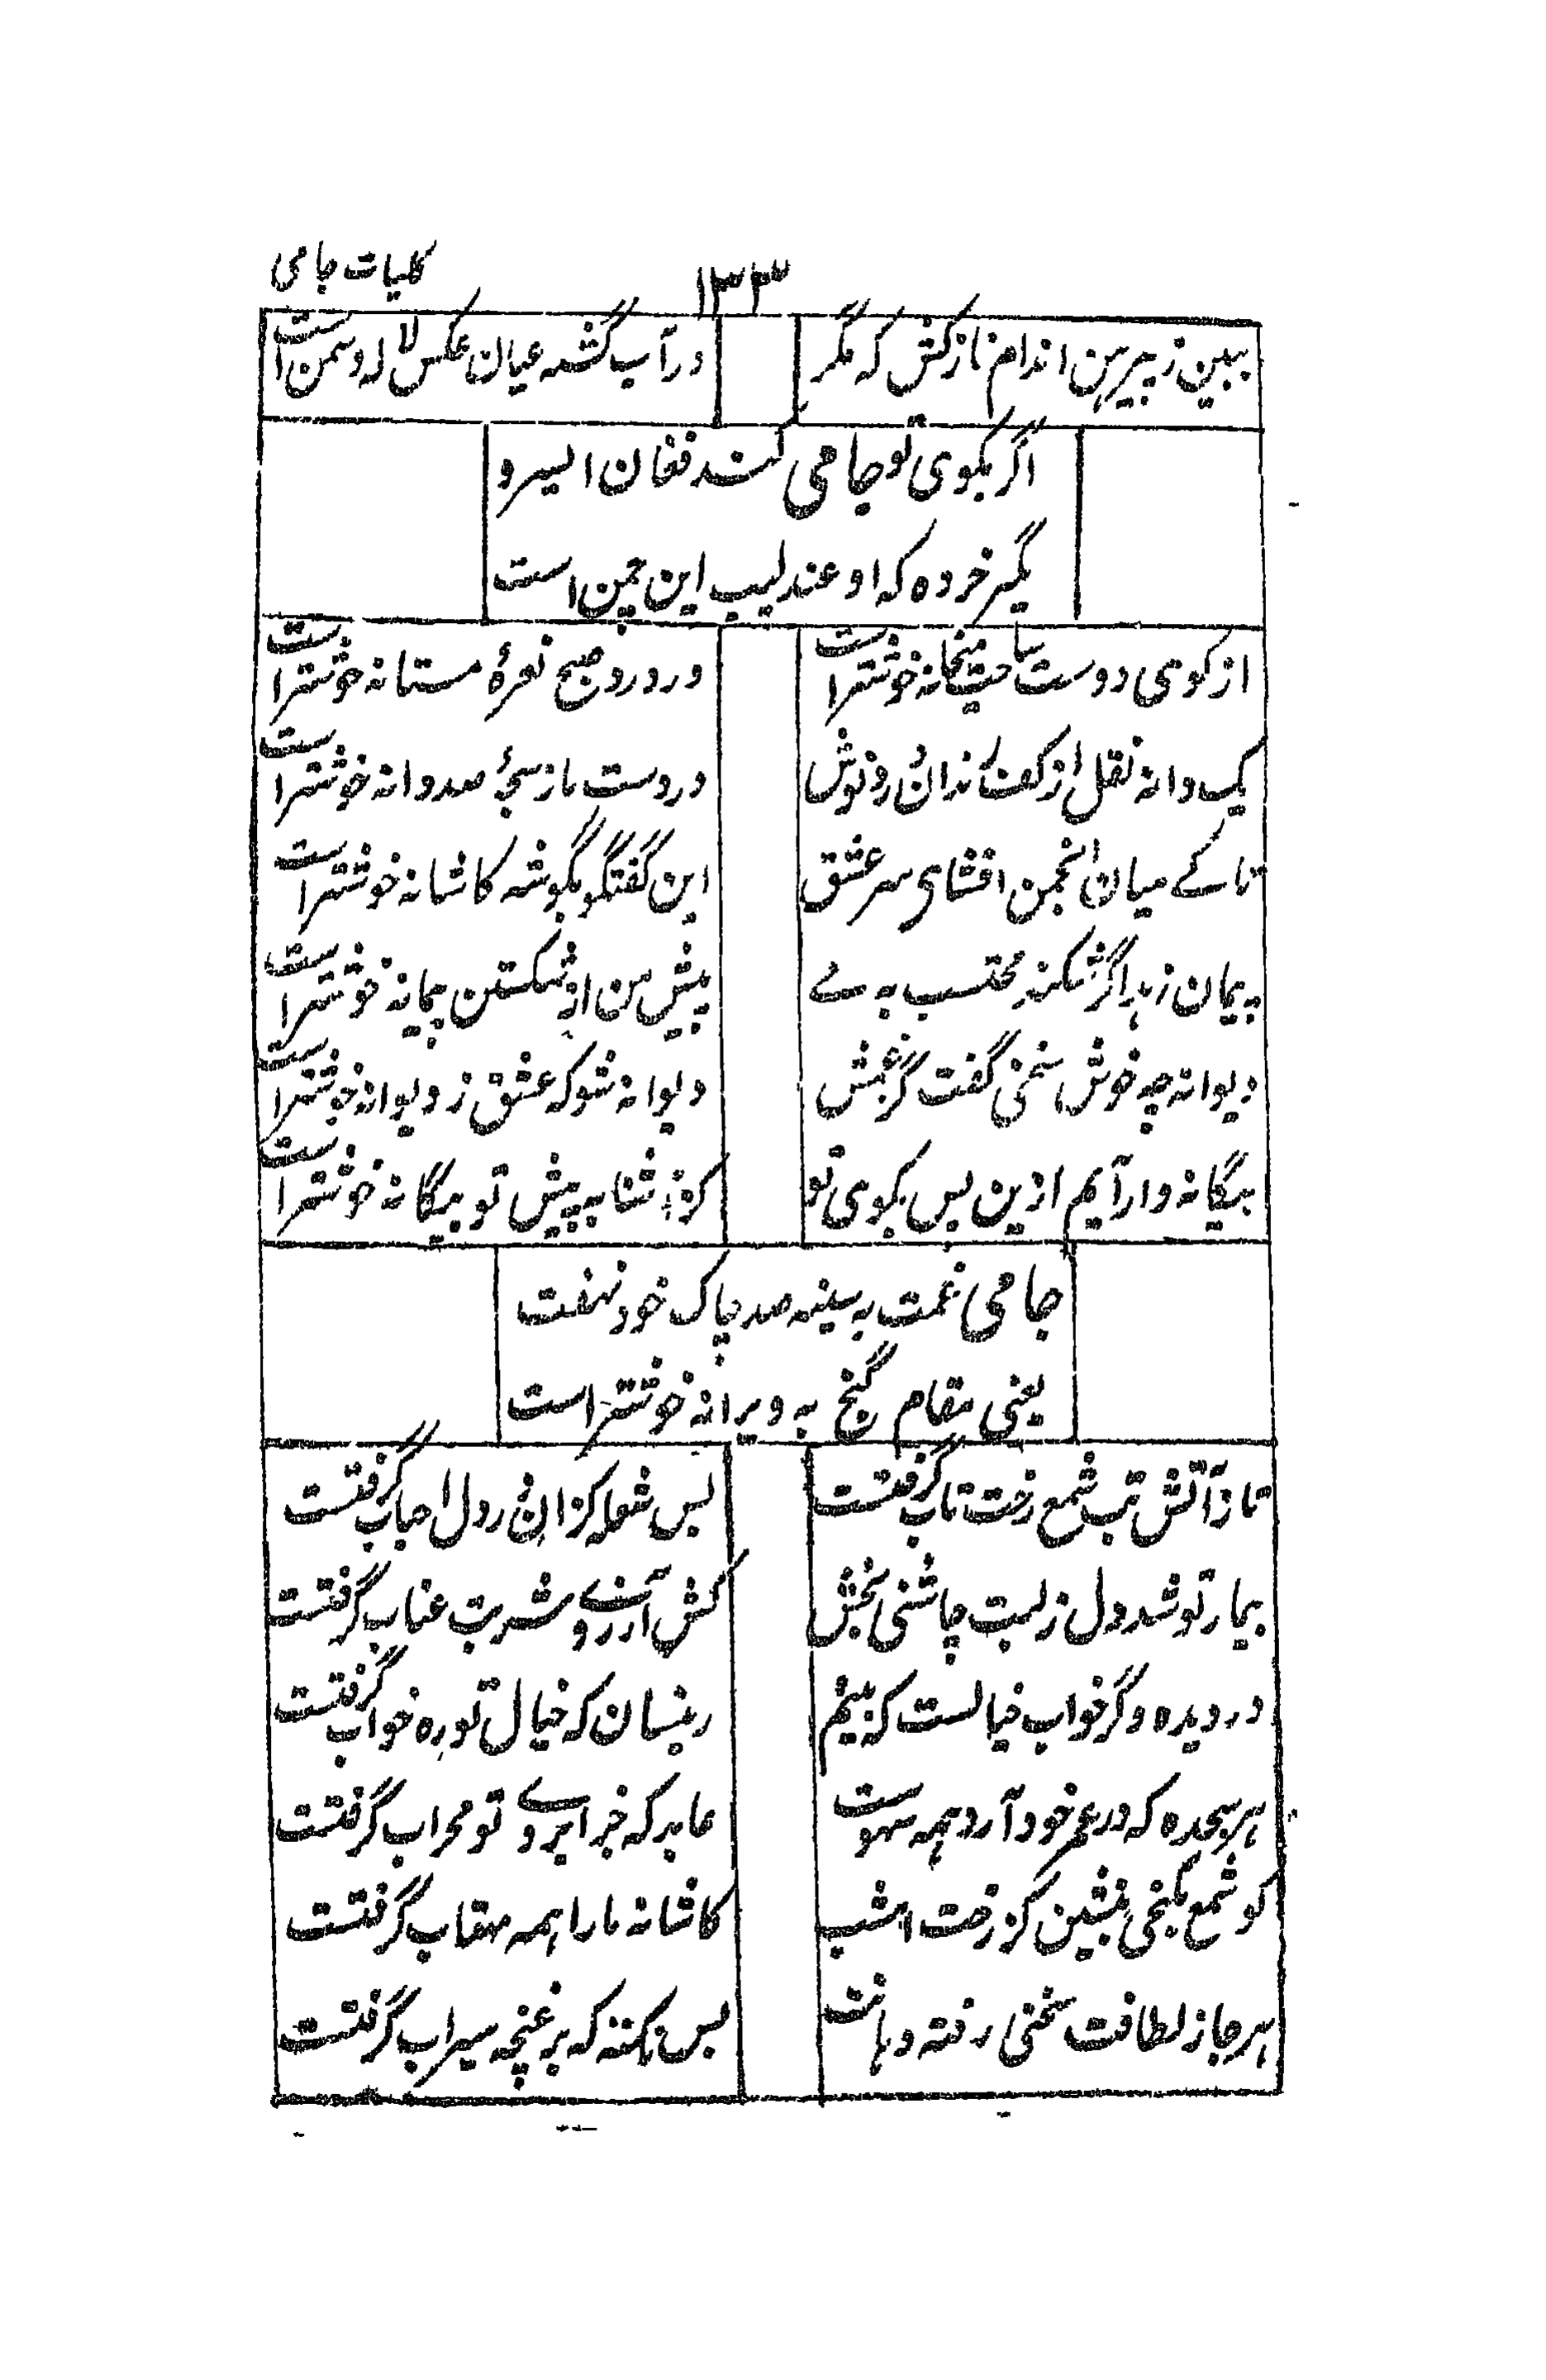 کلیات جامی
۱۳۳
ببین ز پیرہن اندام نازکش کہ مگر
در آب گشتہ عیان عکس لالہ و سمن است
اگر بکوی تو جامی کند فغان اسیرو
مگیر خردہ کہ او عندلیب این چمن است
از کوی دوست ساحت میخانہ خوشتر است
ور درود صبح نعرۂ مستانہ خوشتر است
یک دانہ نقل از کف رندان درد نوش
در دست ما ز سبحۂ صد دانہ خوشتر است
تا کے میان انجمن افشای سر عشق
این گفتگو بگوشہ کاشانہ خوشتر است
پیمان زہد اگر شکند محتسب بہ مے
پیش من از شکستن پیمانہ خوشتر است
دیوانہ چہ خوش سخنی گفت گر غمش
دیوانہ شو کہ عشق ز دیوانہ خوشتر است
بیگانہ وار آیم ازین پس بکوی تو
کز آشنا بہ پیش تو بیگانہ خوشتر است
جامی غمت بہ سینہ صد چاک خود نہفت
یعنی مقام گنج بہ ویرانہ خوشتر است
تا ز آتش تب شمع رخت تاب گرفتست
بس شعلہ کزان در دل احباب گرفتست
بیمار تو شد دل ز لبت چاشنی بخش
کش آرزوے شربت عناب گرفتست
در دیدہ و گر خواب خیالست کہ بینم
زینسان کہ خیال تو رہ خواب گرفتست
ہر سجدہ کہ در عمر خود آرد ہمہ سہوست
عابد کہ جز ابروے تو محراب گرفتست
گو شمع بکنجی بنشین کز رخت امشب
کاشانہ ما را ہمہ مہتاب گرفتست
ہر جا ز لطافت سخنی رفتہ دہانت
بس نکتہ کہ بر غنچہ سیراب گرفتست